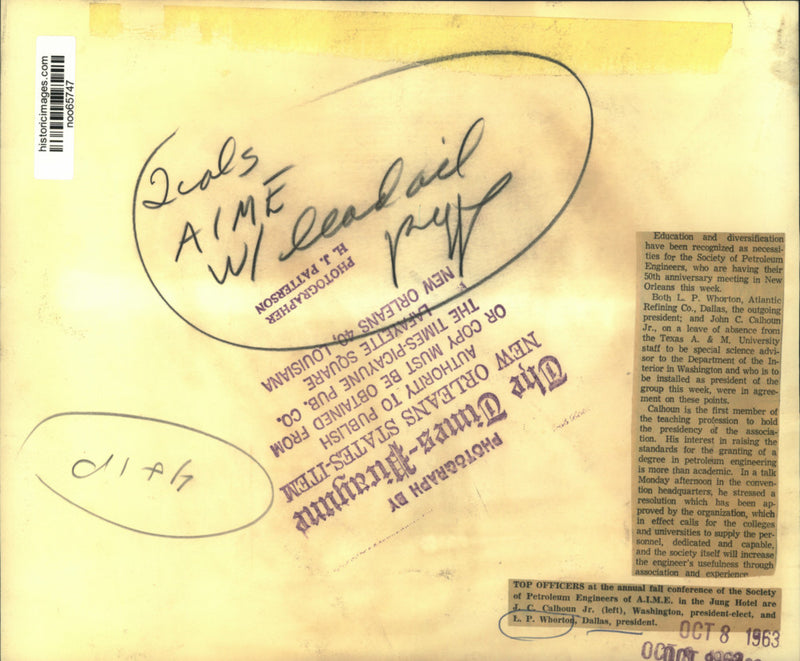 historicimages.com
noo65747
2cols
AIME
W/ lead oil
PHOTOGRAPHER
H. J. PATTERSON
NEW ORLEANS 40, LOUISIANA
LAFAYETTE SQUARE
THE TIMES-PICAYUNE PUB. CO.
OR COPY MUST BE OBTAINED FROM
AUTHORITY TO PUBLISH
NEW ORLEANS STATES-ITEM
The Times-Picayune
PHOTOGRAPH BY
Education and diversification
have been recognized as necessi-
ties for the Society of Petroleum
Engineers, who are having their
50th anniversary meeting in New
Orleans this week.
Both L. P. Whorton, Atlantic
Refining Co., Dallas, the outgoing
president; and John C. Calhoun
Jr., on a leave of absence from
the Texas A. & M. University
staff to be special science advi-
sor to the Department of the In-
terior in Washington and who is to
be installed as president of the
group this week, were in agree-
ment on these points.
Calhoun is the first member of
the teaching profession to hold
the presidency of the associa-
tion. His interest in raising the
standards for the granting of a
degree in petroleum engineering
is more than academic. In a talk
Monday afternoon in the conven-
tion headquarters, he stressed a
resolution which has been ap-
proved by the organization, which
in effect calls for the colleges
and universities to supply the per-
sonnel, dedicated and capable,
and the society itself will increase
the engineer's usefulness through
association and experience
TOP OFFICERS at the annual fall conference of the Society
of Petroleum Engineers of A.I.M.E. in the Jung Hotel are
J. C. Calhoun Jr. (left), Washington, president-elect, and
L. P. Whorton, Dallas, president.
OCT 8 1963